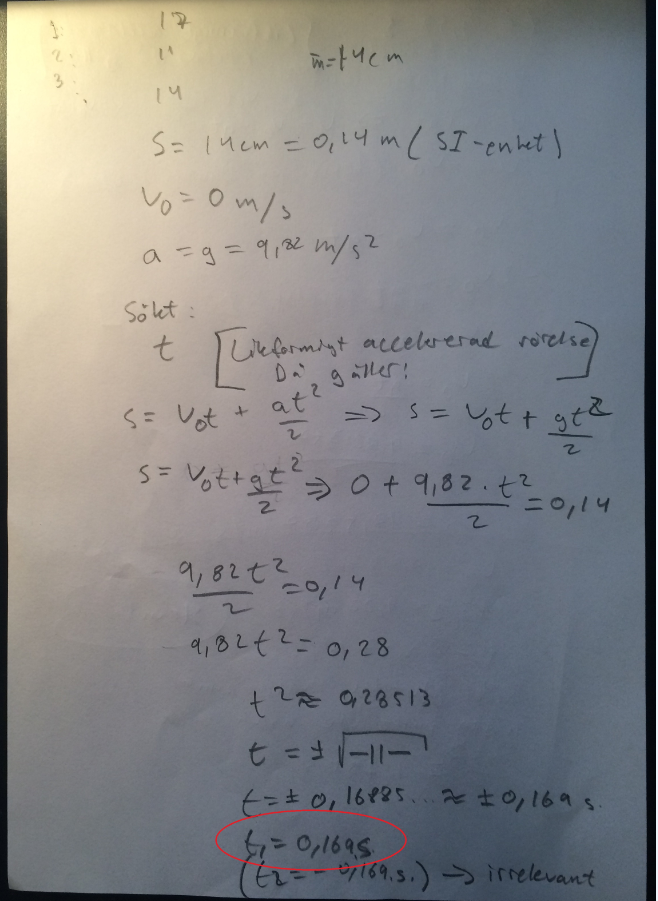 1. 17
2. 11
3. 14
m=14cm
S = 14cm = 0,14 m ( SI-enhet)
V₀ = 0 m/s
a = g = 9,82 m/s²
Sökt:
t [Likformigt accelererad rörelse
Då gäller!]
s = V₀t + at²/2 => s = V₀t + gt²/2
s = V₀t + gt²/2 => 0 + 9,82 · t²/2 = 0,14
9,82t²/2 = 0,14
9,82t² = 0,28
t² ≈ 0,28513
t = ± √-11-
t = ± 0,16885... ≈ ± 0,169 s.
t₁ = 0,169s
(t₂ = - 0,169.s.) -> irrelevant